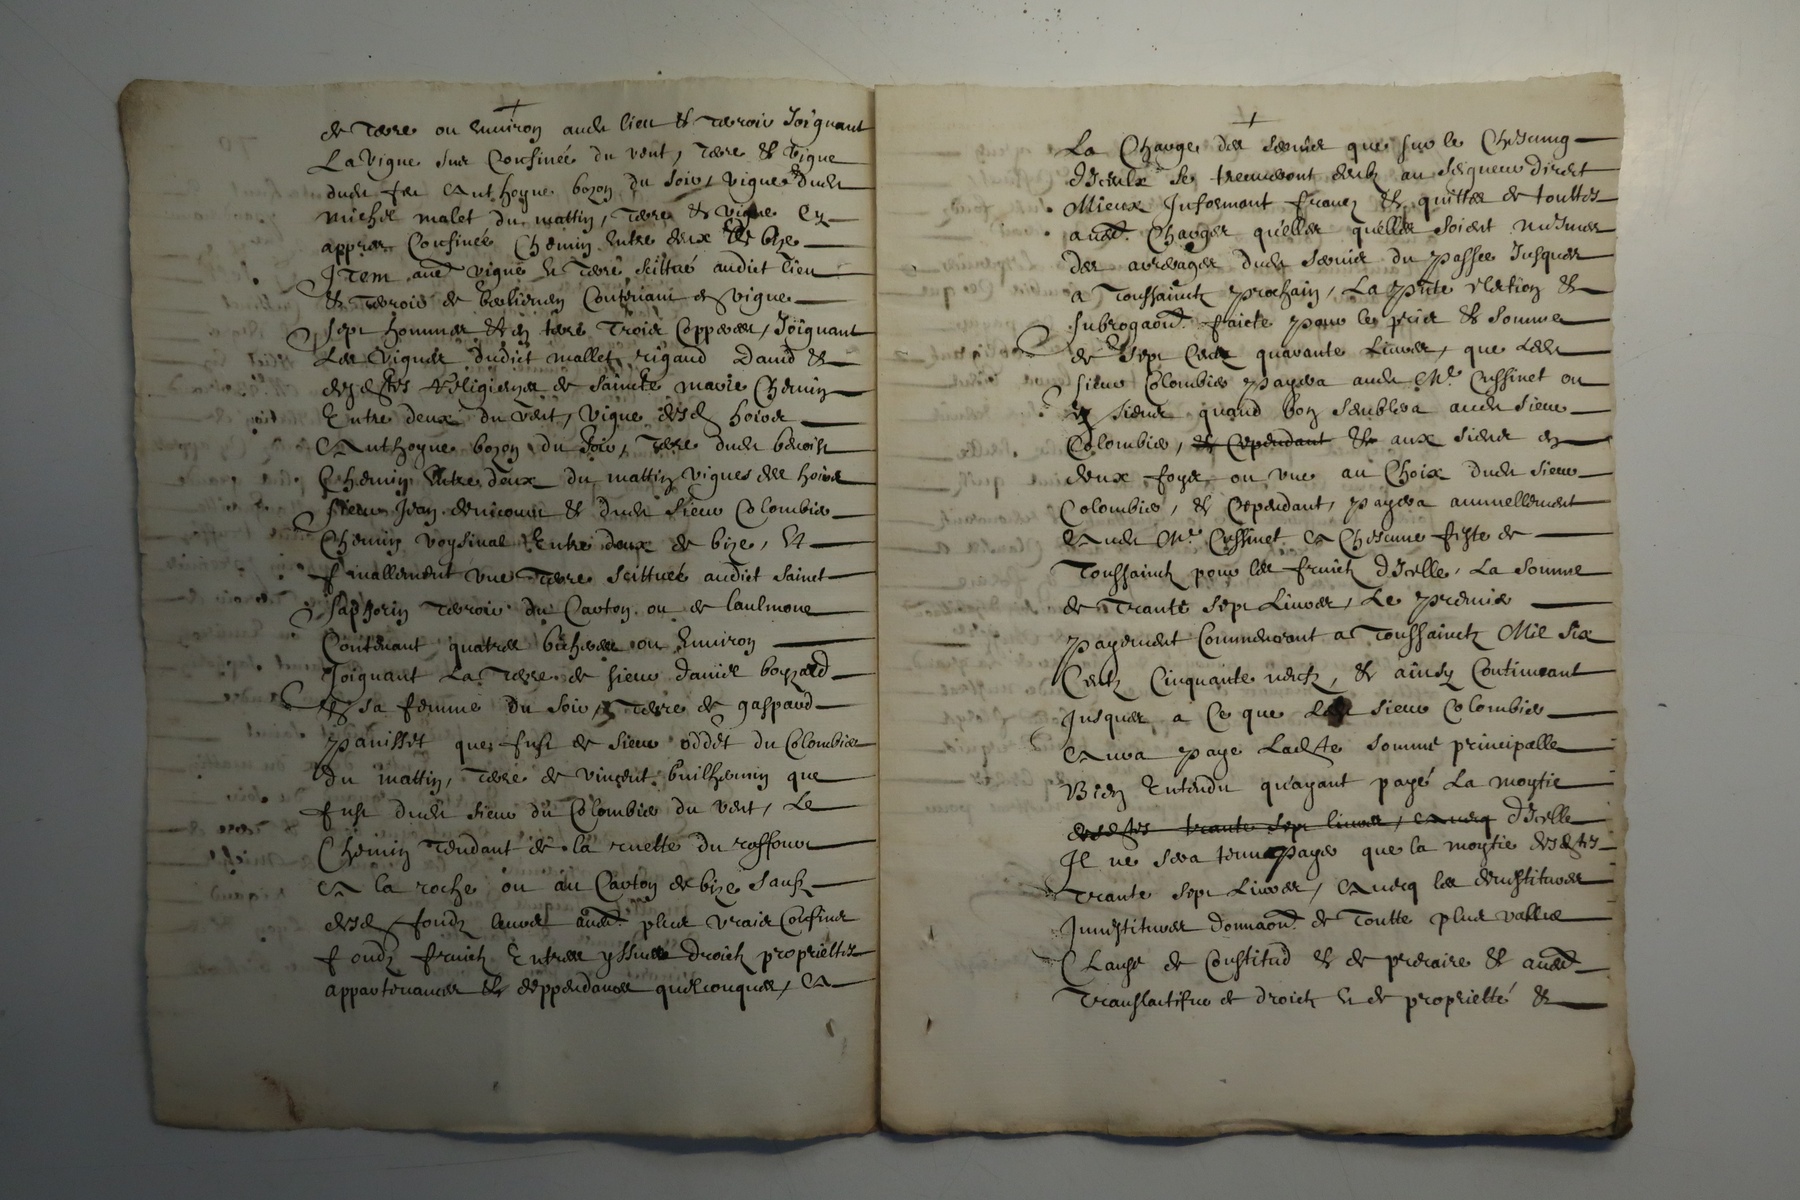 de Terre ou Environ audit lieu & Terroir Joignant
La vigne sus Confinée du vent, Terre & vigne
dudit feu Anthoyne bozon du soir, vigne dudit
michel malet du mattin, Terre & vigne Cy
appres Confinée Chemin Entre deux de bize
Item aud. vigne & Terre scittué audict lieu
& Terroir de Contenant de vigne
sept hommes & En terre Trois Coppees, Joignant
Les vignes dudict mallet, rigaud David &
desdites Religieuzes de saincte marie Chemin
Entre deux du vent, vigne desd. hoirs
Anthoyne bozon du soir, Terre dudit benoist
Chemin Entre deux du mattin vignes des hoirs
sieur Jean & dudit sieur Colombier
Chemin voysinal Entre deux de bize, Et
finallement une Terre scittuée audict sainct
saphorin Terroir du Carton ou de laulmone
Contenant quatres bicherees ou Environ
Joignant La Terre de sieur daniel
& sa femme du soir, Terre de gaspard
panisset que fust de sieur oddet du Colombier
du mattin, Terre de vincent builhemin que
fust dudit sieur du Colombier du vent, Le
Chemin Tendant de la ruette du raffour
A la roche ou au Carton de bize saufz
desd. fondz leurs aud. plus vrais Confins
fondz fruictz Entrees yssues droictz proprieltés
appartenances & deppendances quelconques, A
La Charge des servis que sur le Chescung
d'Iceulx se treuveront deubz au seigneur direct
Mieux Informant francz & quittes de touttes
aud. Charges qu'elles quelles soient mesmes
des arreages dudit servis du passée Jusques
a Toussainctz prochain, La pnte &
subrogaon. faicte pour les pris & somme
de sept Centz quarante Livres, que Ledit
sieur Colombier payera audit Mr. Cussinet ou
Es siens quand bon semblera audit sieur
Colombier, & Cependant & aux siens en
deux foys ou une au Choix dudit sieur
Colombier, & Cependant, payera annuellement
Audit Mr. Cussinet A Chescune feste de
Toussainctz pour les fruictz d'Icelle, La somme
de Trante sept Livres, Le premier
payement Commencant a Toussainctz Mil six
Centz Cinquante neufz, & ainsy Continuant
Jusques a Ce que Ledit sieur Colombier
Aura paye Ladite somme principalle
Bien Entendu qu'ayant payé La moytie
desdites trante sept livres, Aucq d'Icelle
Il ne sera tenu payer que la moytie desdites
Trante sept Livres, Avecq les devestitures
Investitures donnaon. de Toutte plus vallue
Clause de Constitud & de precaire & aud.
Translactifve de droictz & de proprietté &